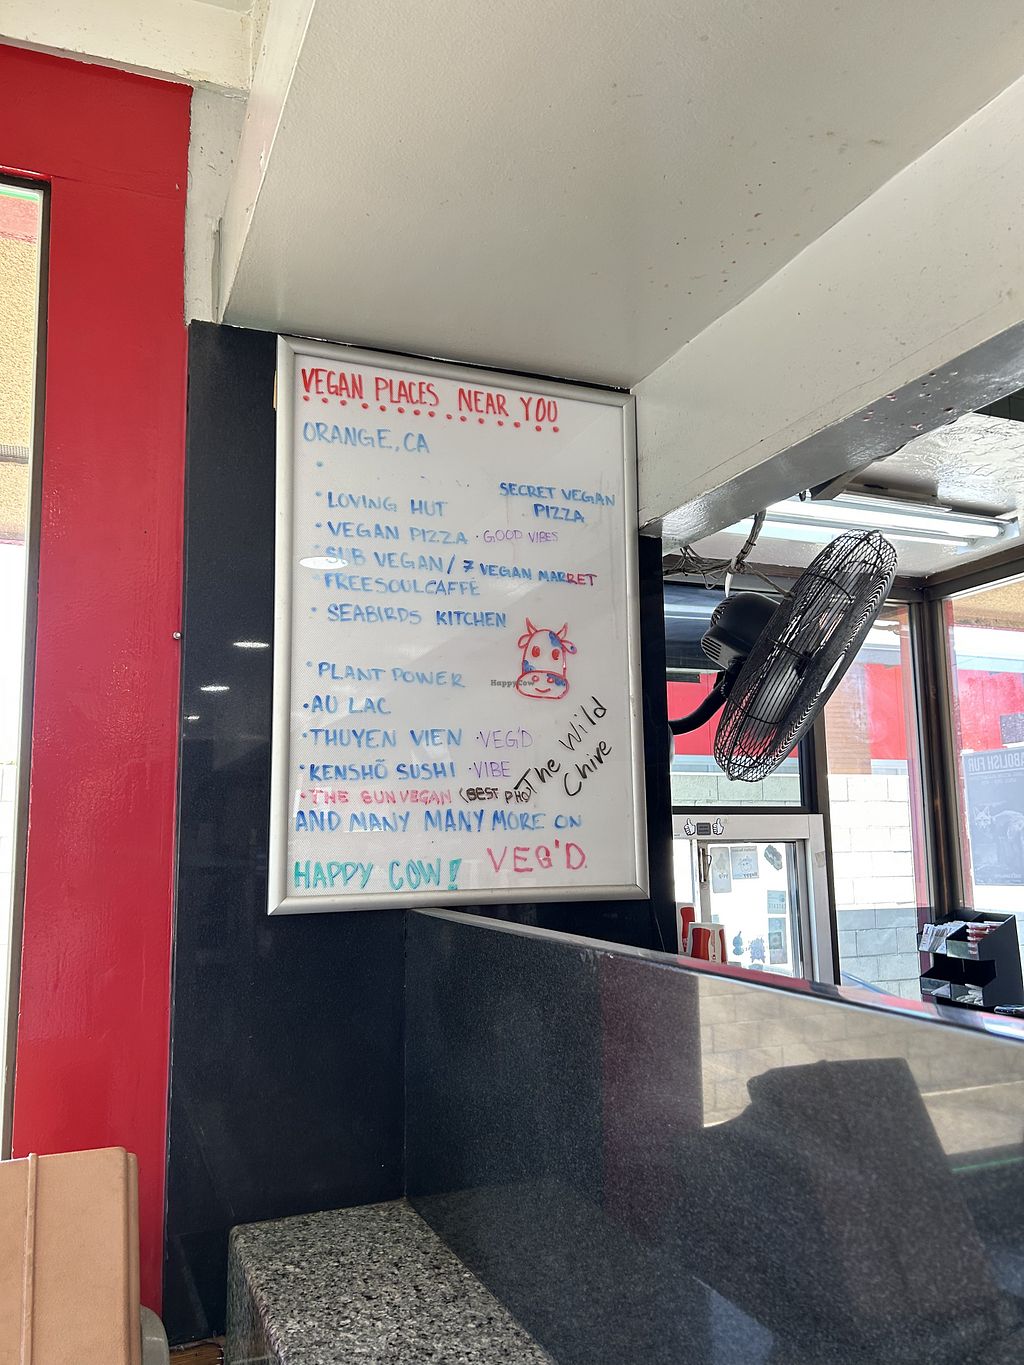 VEGAN PLACES NEAR YOU
ORANGE, CA
• LOVING HUT
SECRET VEGAN
PIZZA
• VEGAN PIZZA • GOOD VIBES
• SUB VEGAN / 7 VEGAN MARKET
• FREESOULCAFFÉ
• SEABIRDS KITCHEN
HappyCow
• PLANT POWER
• AU LAC
• THUYEN VIEN • VEG'D
• KENSHŌ SUSHI • VIBE
The Wild
Chive
• THE SUN VEGAN (BEST PHO)
AND MANY MANY MORE ON
HAPPY COW! VEG'D.
ABOLISH FUR